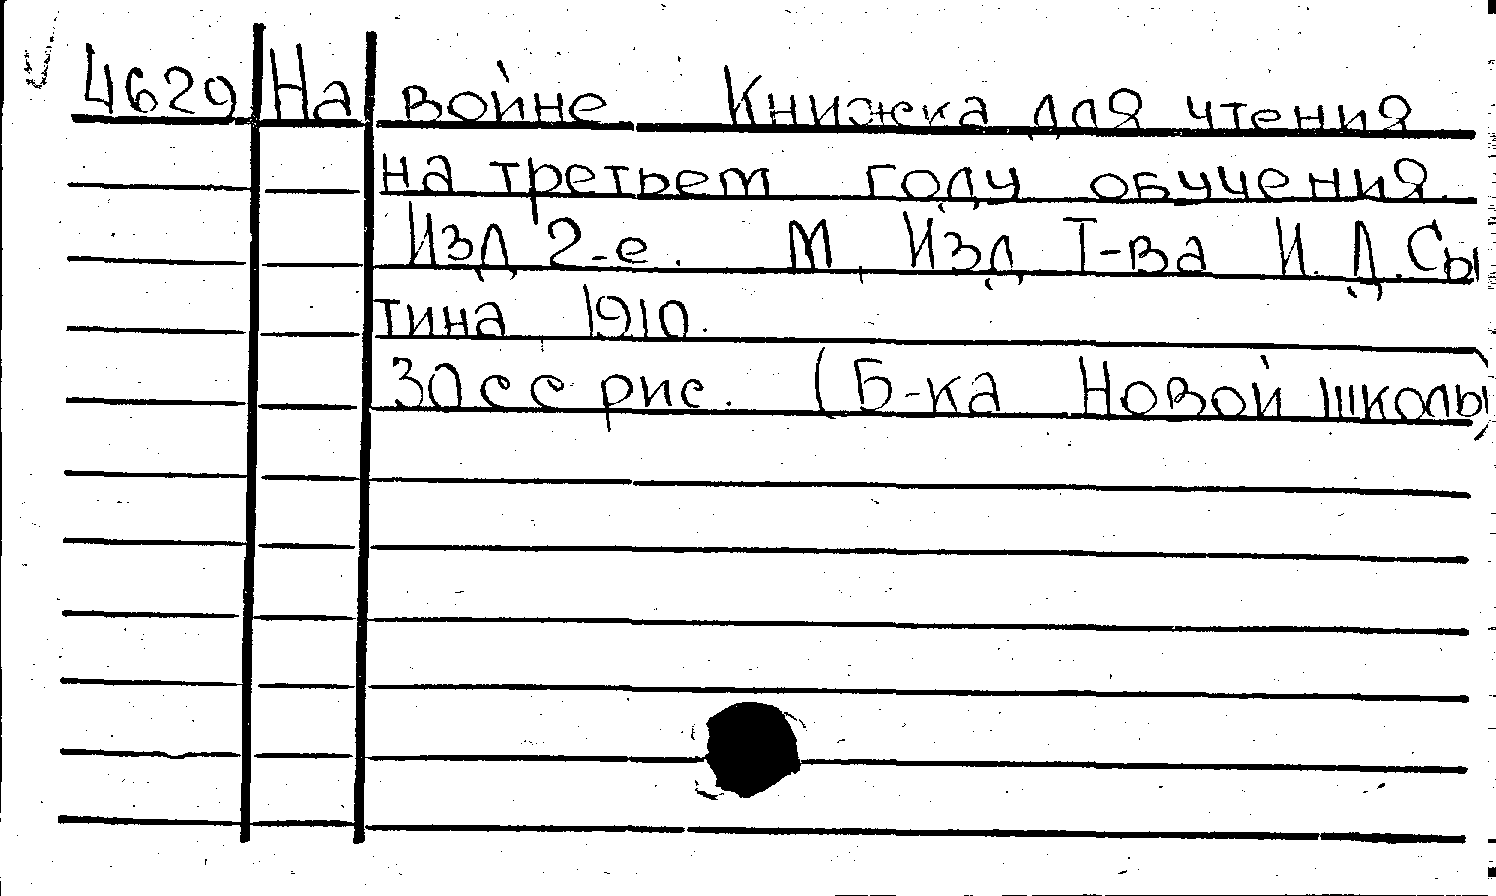 4629 На войне Книжка для чтения
на третьем году обучения.
Изд 2-е. М, Изд Т-ва И. Д. Сы
тина 1910.
30 с с рис. (Б-ка Новой школы)